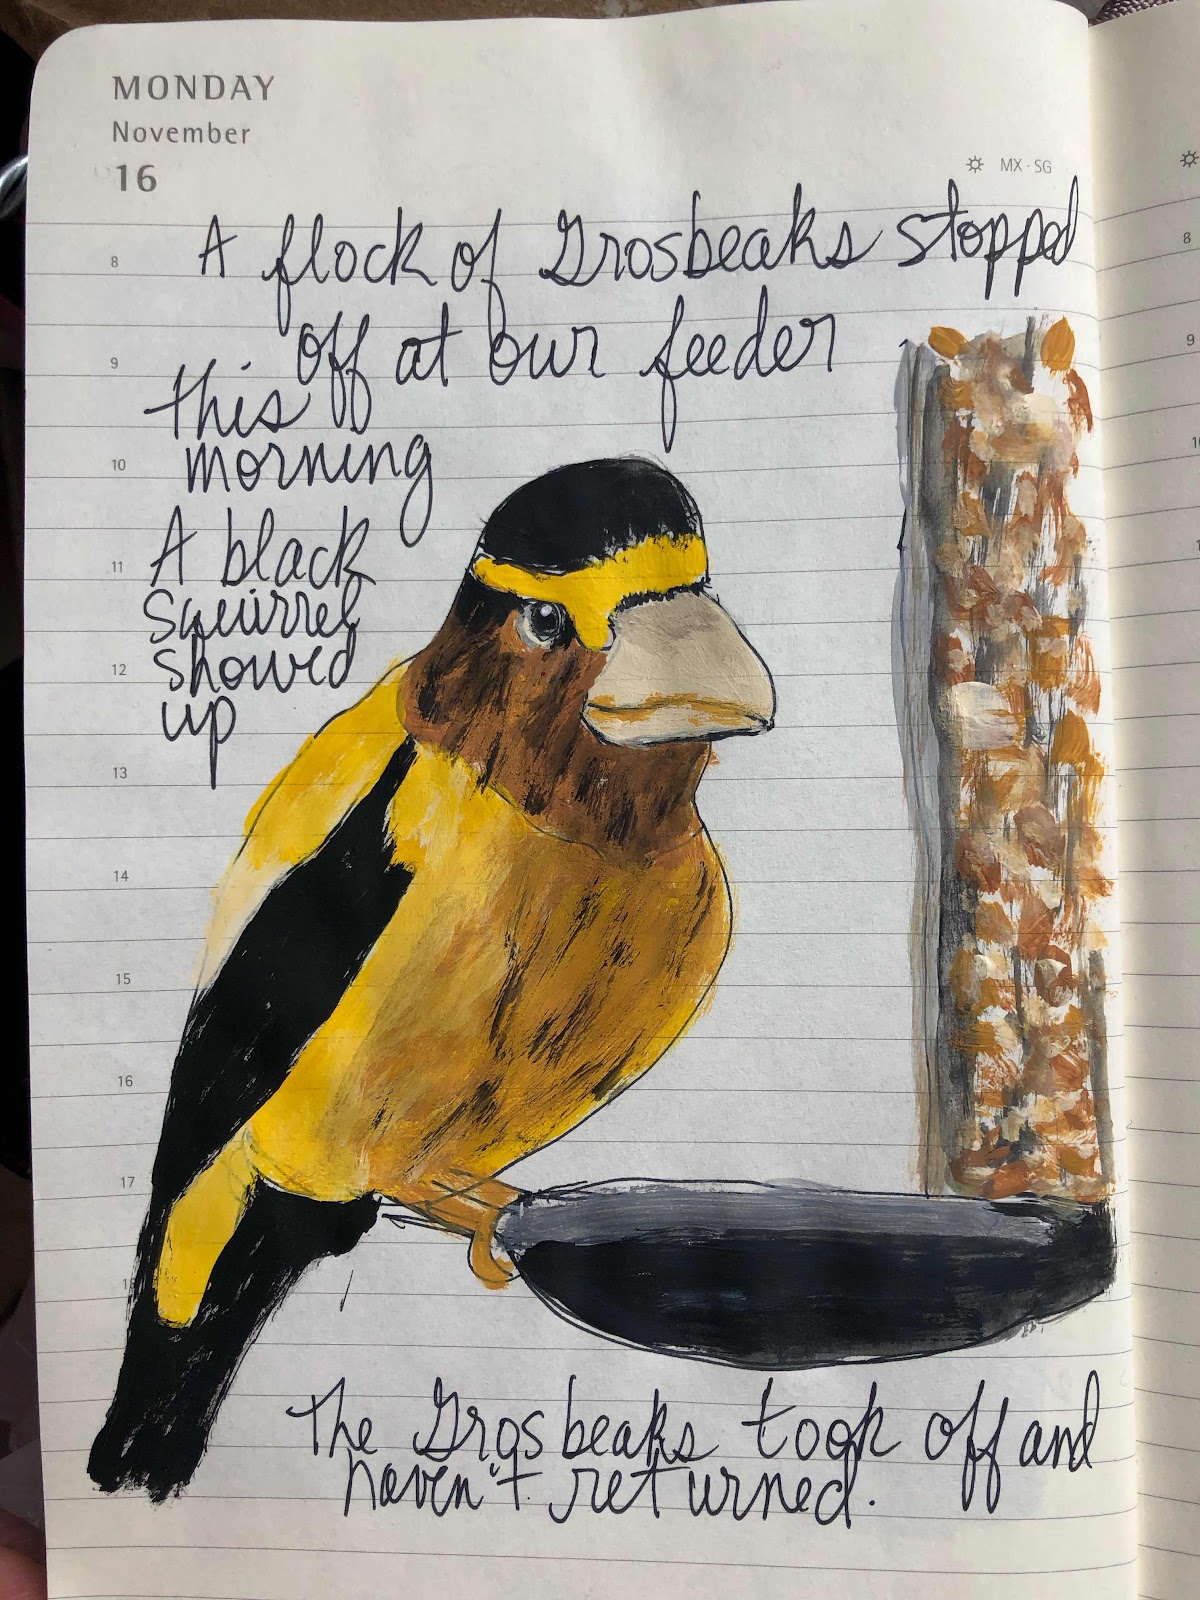 MONDAY
November
16
MX · SG
A flock of Grosbeaks stopped
off at our feeder
this
morning
A black
squirrel
showed
up
8
9
10
11
12
13
14
15
16
17
The Grosbeaks took off and
haven't returned.
8
9